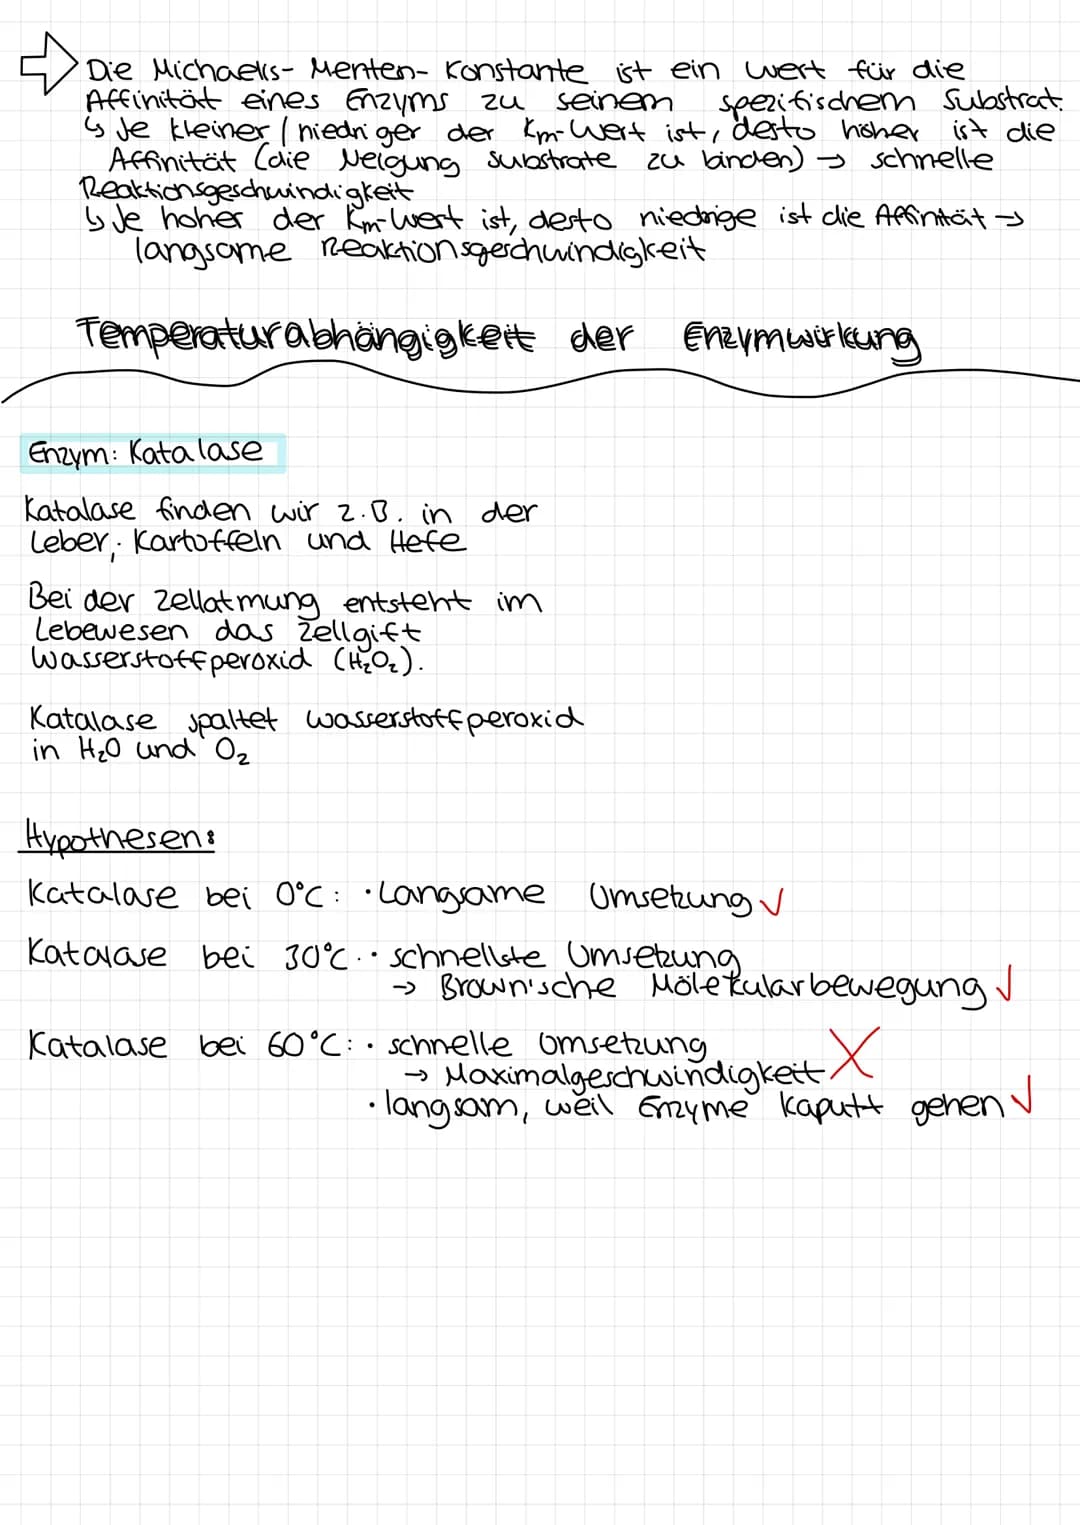 Die Michaelis-Menten-Konstante ist ein Wert für die
Affinität eines Enzyms zu seinem spezifischem Substrat.
↳ Je kleiner / niedriger der Km-Wert ist, desto höher ist die
Affinität (die Neigung Substrate zu binden) → schnelle
Reaktionsgeschwindigkeit
↳ Je hoher der Km-Wert ist, desto niedrige ist die Affinität →
langsame Reaktionsgeschwindigkeit
Temperaturabhängigkeit der Enzymwirkung
Enzym: Katalase
Katalase finden wir z.B. in der
Leber, Kartoffeln und Hefe
Bei der Zellatmung entsteht im
Lebewesen das Zellgift
Wasserstoffperoxid (H₂O₂).
Katalase spaltet wasserstoffperoxid
in H₂O und O₂
Hypothesen:
Katalase bei 0°C: · Langsame Umsetzung ✓
Katalase bei 30°C: · schnellste Umsetzung
→ Brown'sche Molekularbewegung ✓
Katalase bei 60°C: · schnelle Umsetzung
→ Maximalgeschwindigkeit X
· langsam, weil Enzyme kaputt gehen ✓